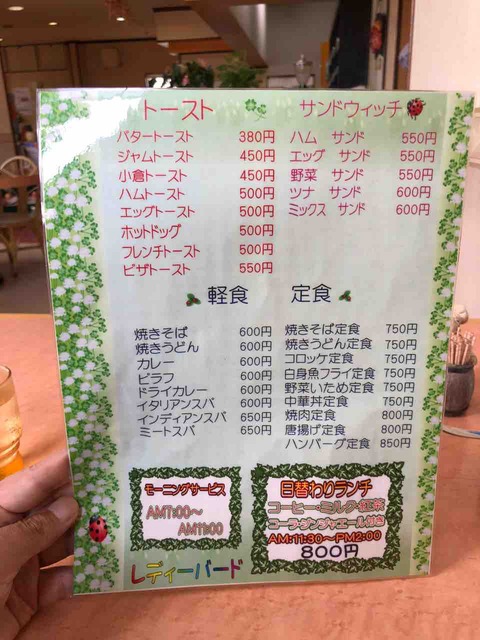 トースト
バタートースト 380円
ジャムトースト 450円
小倉トースト 450円
ハムトースト 500円
エッグトースト 500円
ホットドッグ 500円
フレンチトースト 500円
ピザトースト 550円
サンドウィッチ
ハム サンド 550円
エッグ サンド 550円
野菜 サンド 550円
ツナ サンド 600円
ミックス サンド 600円
軽食
焼きそば 600円
焼きうどん 600円
カレー 600円
ピラフ 600円
ドライカレー 600円
イタリアンスパ 600円
インディアンスパ 650円
ミートスパ 650円
定食
焼きそば定食 750円
焼きうどん定食 750円
コロッケ定食 750円
白身魚フライ定食 750円
野菜いため定食 750円
中華丼定食 750円
焼肉定食 800円
唐揚げ定食 800円
ハンバーグ定食 850円
モーニングサービス
AM7:00～
AM11:00
日替わりランチ
コーヒー・ミルク・紅茶
コーラ・ジンジャエール付き
AM:11:30～PM2:00
800円
レディーバード